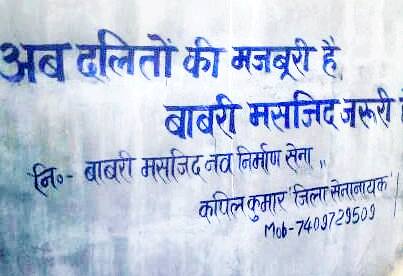 अब दलितों की मजबूरी है,
बाबरी मसजिद जरूरी है
नि०- बाबरी मसजिद नव निर्माण सेना ,,
कपिल कुमार 'जिला सेनानायक'
Mob-7409729509